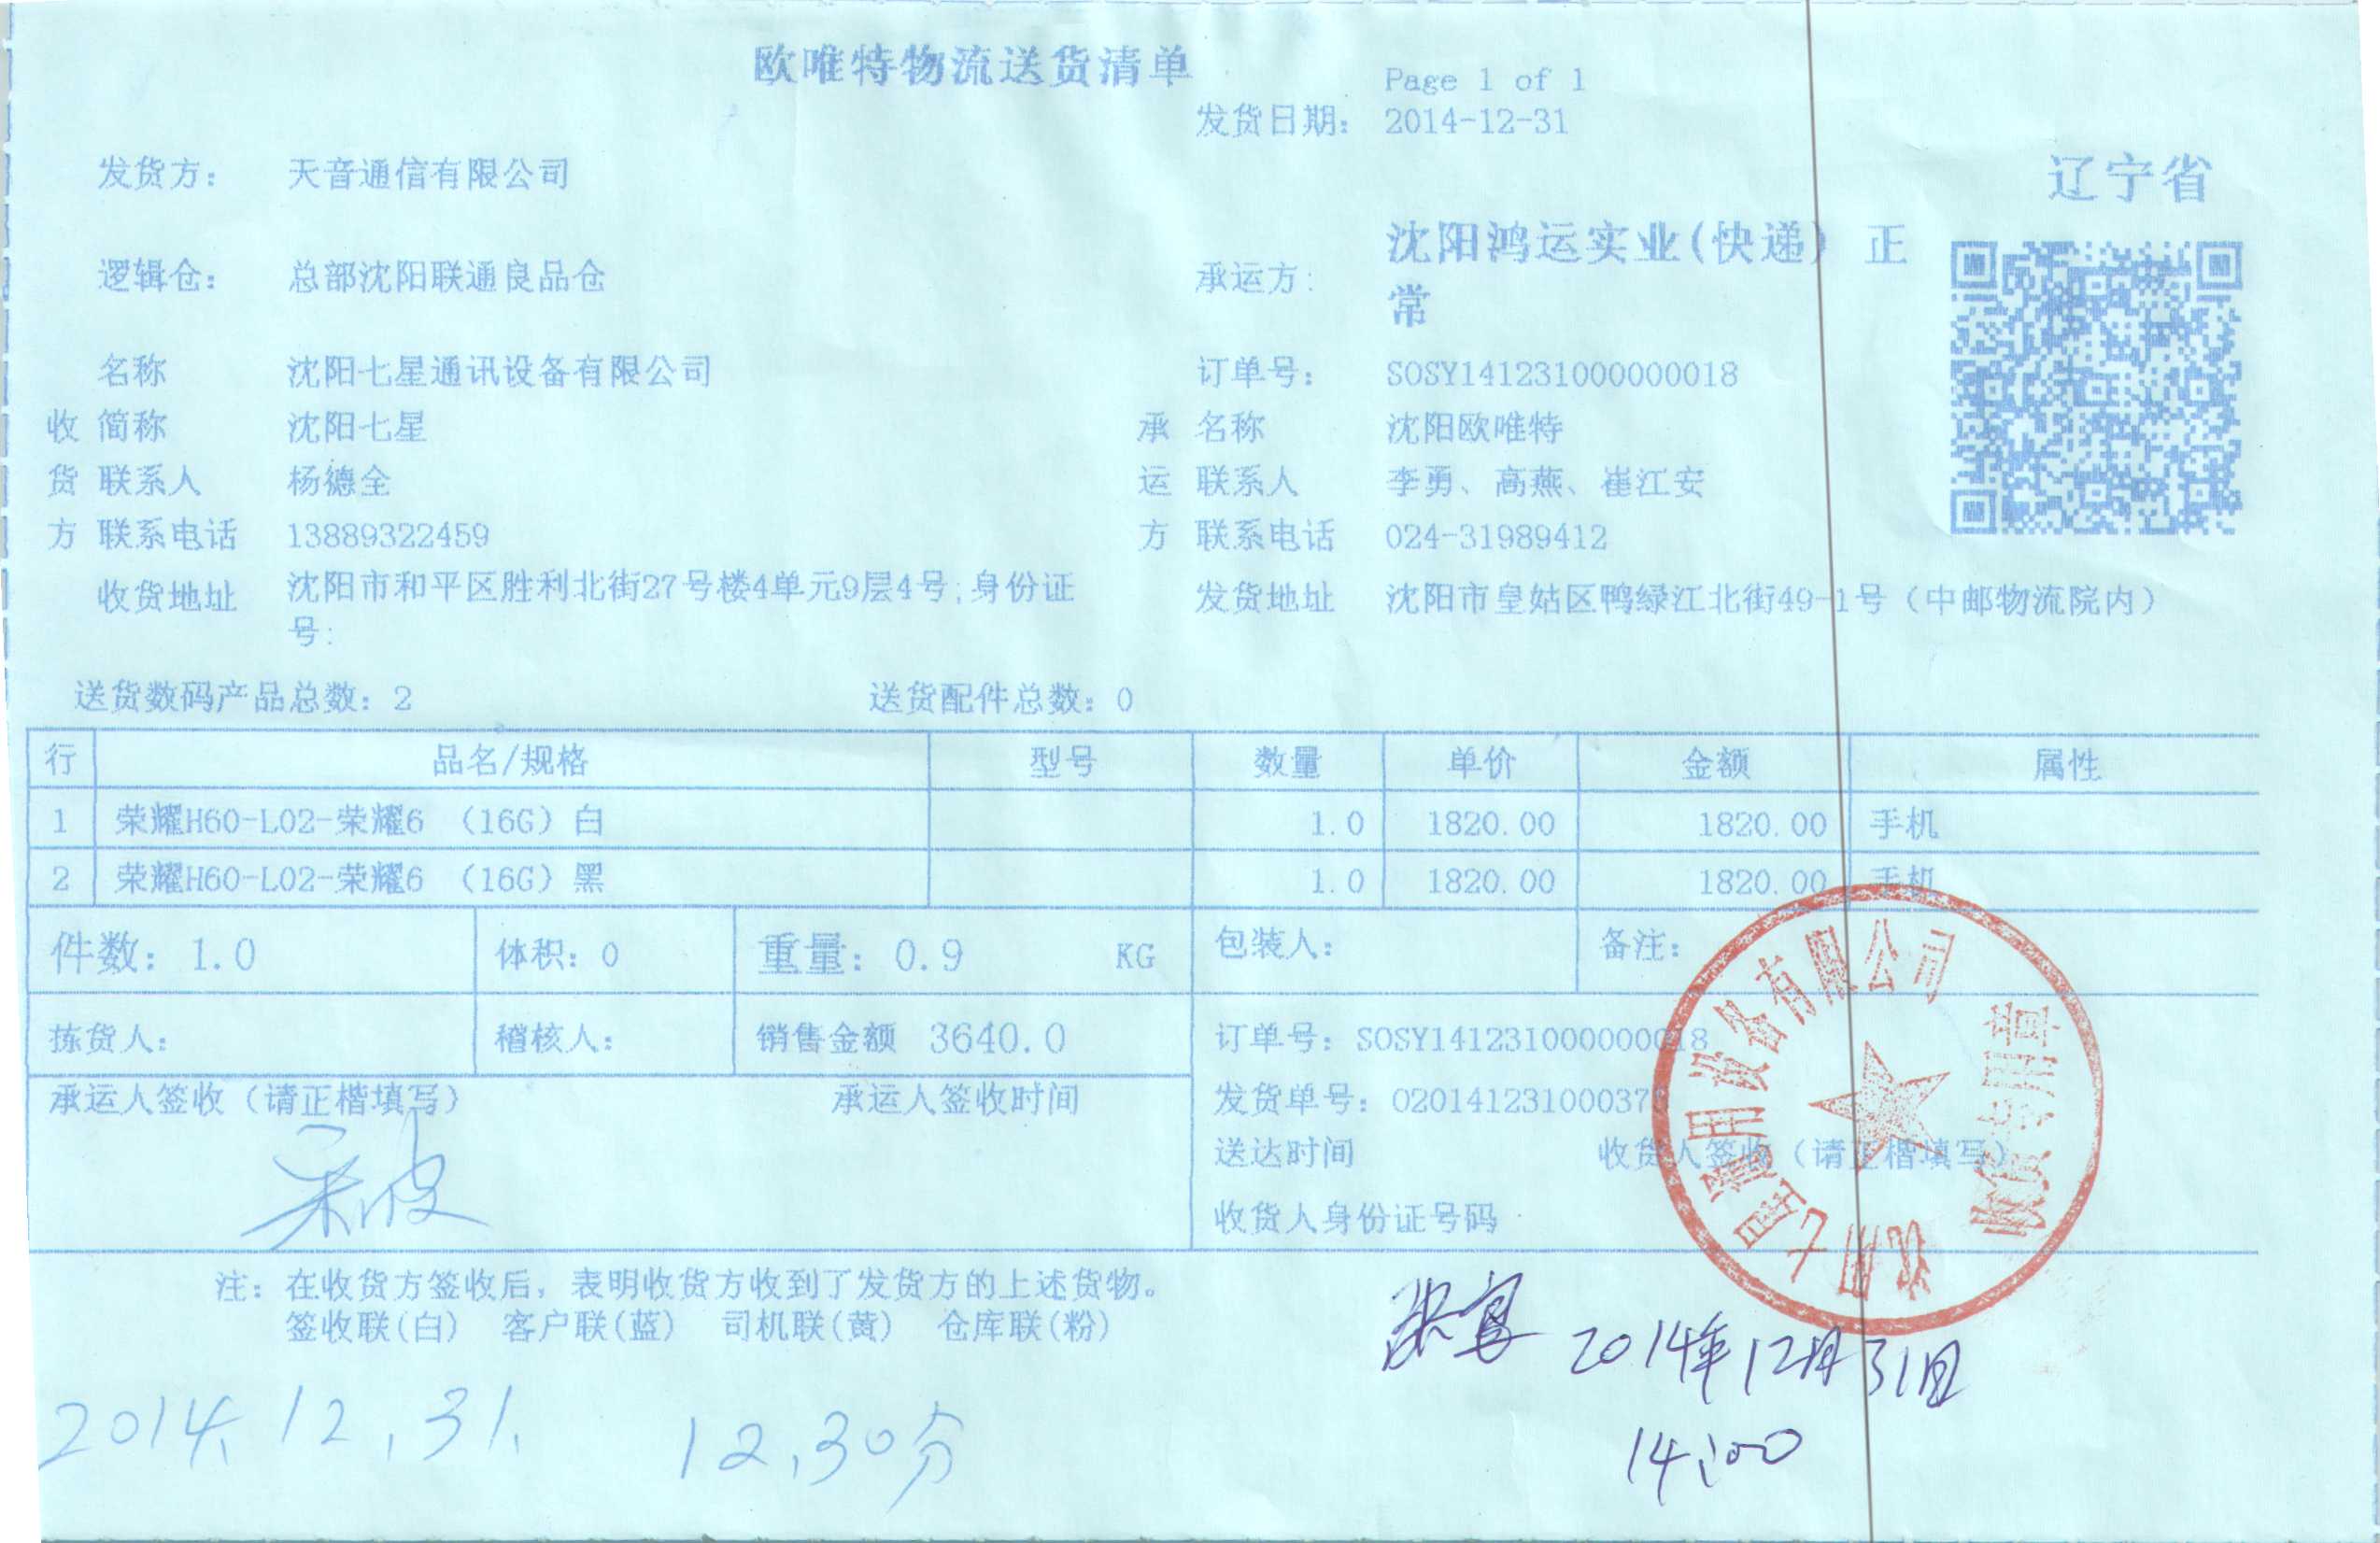 欧唯特物流送货清单
Page 1 of 1
发货日期: 2014-12-31
发货方: 天音通信有限公司
辽宁省
逻辑仓: 总部沈阳联通良品仓
承运方: 沈阳鸿运实业(快递) 正
常
名称 沈阳七星通讯设备有限公司
订单号: SOSY141231000000018
收 简称 沈阳七星
承 名称 沈阳欧唯特
货 联系人 杨德全
运 联系人 李勇、高燕、崔江安
方 联系电话 13889322459
方 联系电话 024-31989412
收货地址 沈阳市和平区胜利北街27号楼4单元9层4号;身份证
号:
发货地址 沈阳市皇姑区鸭绿江北街49-1号（中邮物流院内）
送货数码产品总数: 2 送货配件总数: 0
行 品名/规格 型号 数量 单价 金额 属性
1 荣耀H60-L02-荣耀6 （16G）白 1.0 1820.00 1820.00 手机
2 荣耀H60-L02-荣耀6 （16G）黑 1.0 1820.00 1820.00 手机
件数: 1.0 体积: 0 重量: 0.9 KG 包装人: 备注:
拣货人: 稽核人: 销售金额 3640.0 订单号: SOSY141231000000018
承运人签收（请正楷填写） 承运人签收时间
发货单号: 02014123100037
送达时间 收货人签收（请正楷填写）
收货人身份证号码
注: 在收货方签收后, 表明收货方收到了发货方的上述货物。
签收联(白) 客户联(蓝) 司机联(黄) 仓库联(粉)
2014年12月31日
14:00
2014.12.31. 12.30分